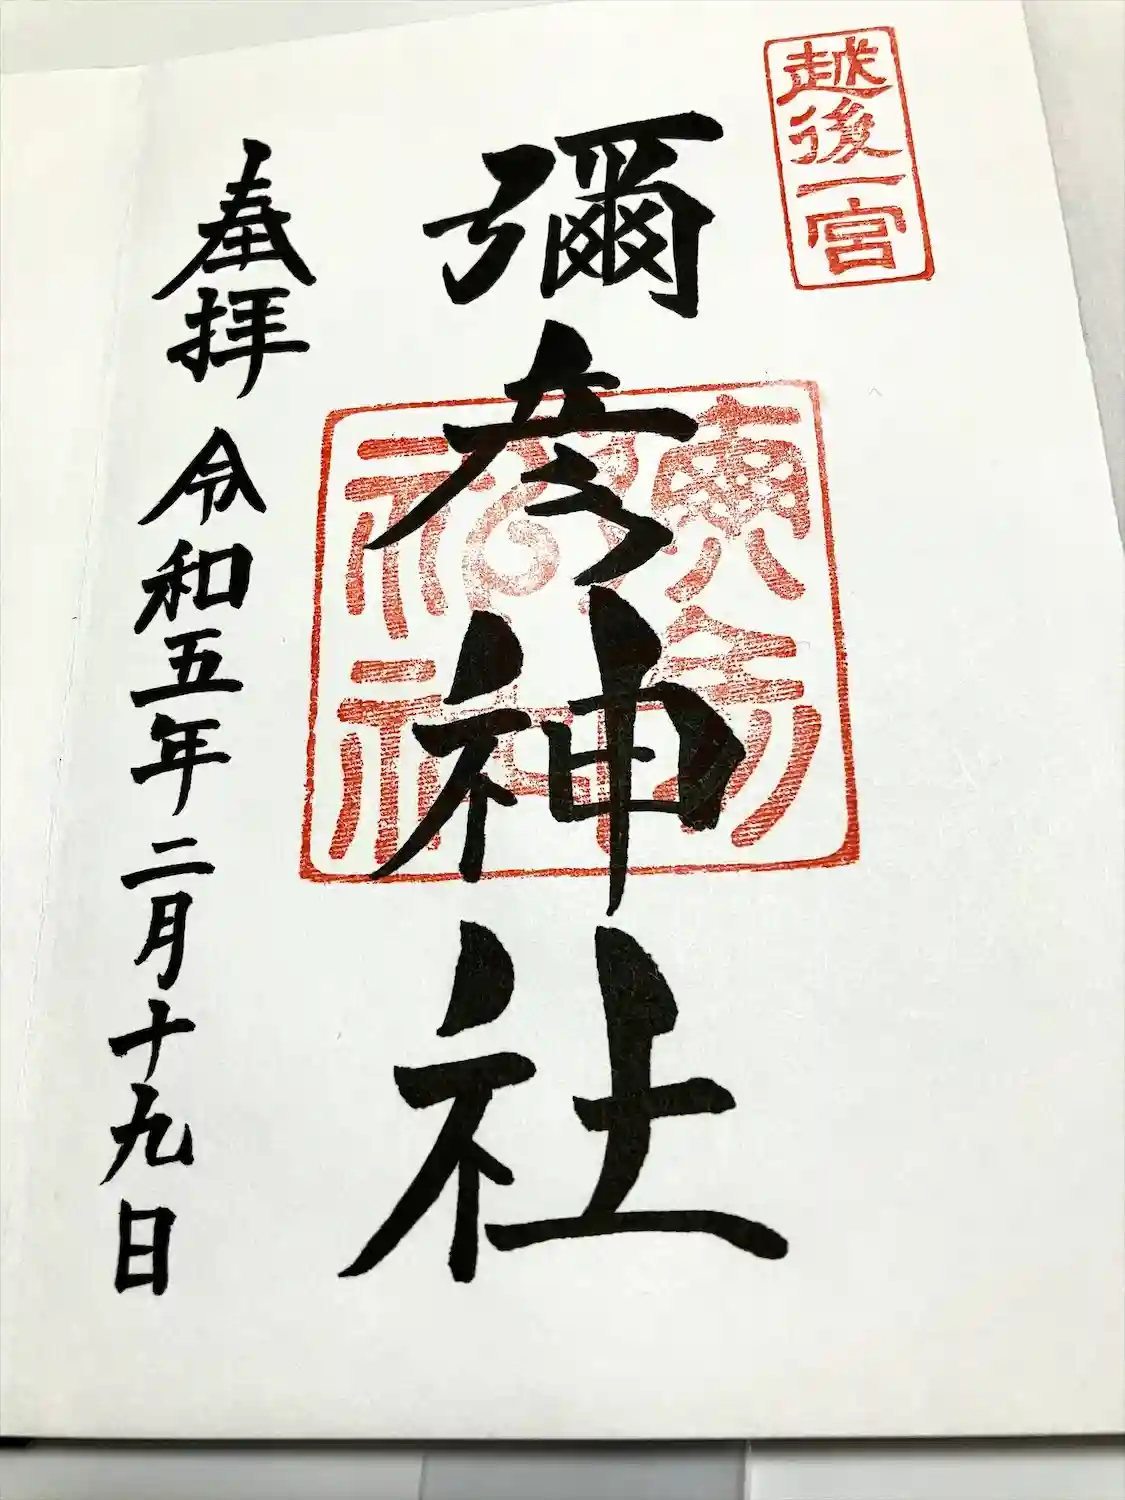 越後一宮
彌彦神社
奉拝 令和五年二月十九日